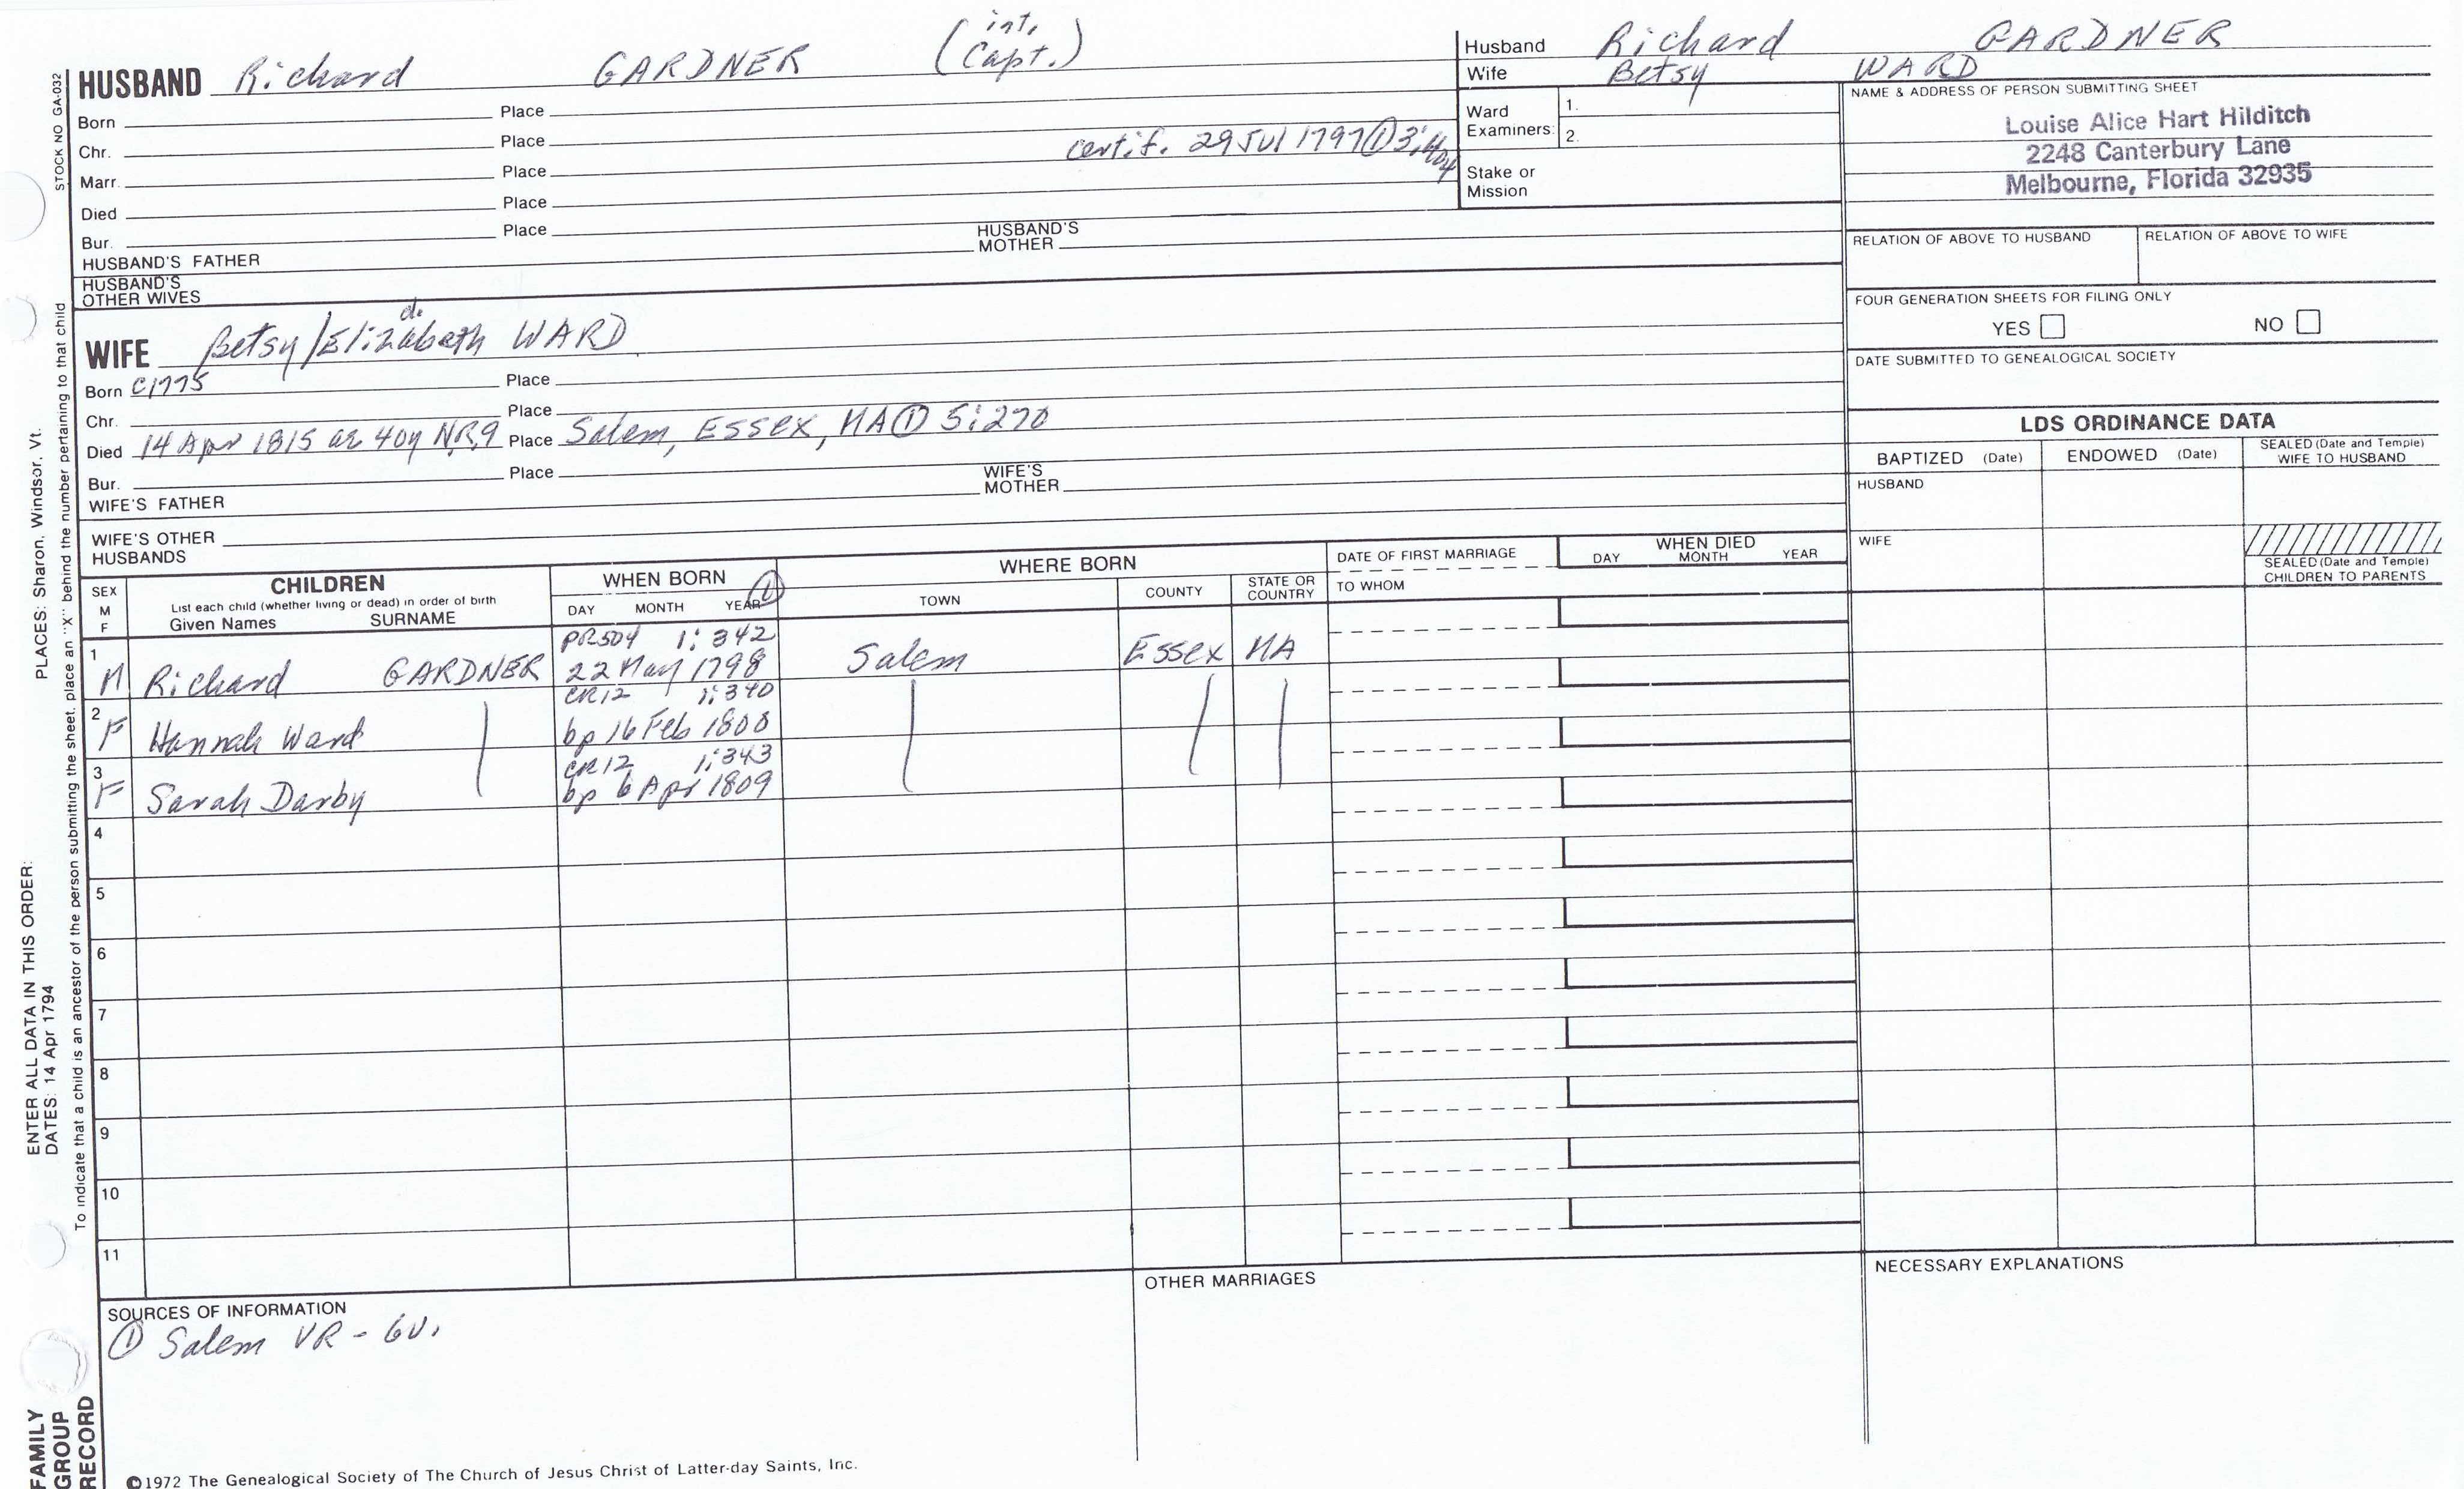 STOCK NO GA-032
HUSBAND Richard GARDNER (int. Capt.)
Born Place
Chr. Place
Marr. Place certif. 29 Jul 1797 ①
Died Place
Bur. Place
HUSBAND'S FATHER HUSBAND'S MOTHER
HUSBAND'S OTHER WIVES
Husband Richard GARDNER
Wife Betsy WARD
Ward Examiners: 1.
2.
Stake or Mission
NAME & ADDRESS OF PERSON SUBMITTING SHEET
Louise Alice Hart Hilditch
2248 Canterbury Lane
Melbourne, Florida 32935
RELATION OF ABOVE TO HUSBAND RELATION OF ABOVE TO WIFE
FOUR GENERATION SHEETS FOR FILING ONLY
YES NO
DATE SUBMITTED TO GENEALOGICAL SOCIETY
d.
WIFE Betsy/Elizabeth WARD
Born c1775 Place
Chr. Place
Died 14 Apr 1815 ae 40y NR9 Place Salem, Essex, MA ① 5:270
Bur. Place
WIFE'S FATHER WIFE'S MOTHER
WIFE'S OTHER HUSBANDS
LDS ORDINANCE DATA
BAPTIZED (Date) ENDOWED (Date) SEALED (Date and Temple) WIFE TO HUSBAND
HUSBAND
WIFE
SEALED (Date and Temple) CHILDREN TO PARENTS
SEX M F
CHILDREN
List each child (whether living or dead) in order of birth
Given Names SURNAME
WHEN BORN ①
DAY MONTH YEAR
WHERE BORN
TOWN COUNTY STATE OR COUNTRY
DATE OF FIRST MARRIAGE
TO WHOM
WHEN DIED
DAY MONTH YEAR
PR504 1:342
1 M Richard GARDNER 22 May 1798 Salem Essex MA
CR12 1:340
2 F Hannah Ward bp 16 Feb 1800
CR12 1:343
3 F Sarah Darby bp 6 Apr 1809
4
5
6
7
8
9
10
11
SOURCES OF INFORMATION
① Salem VR - 6v.
OTHER MARRIAGES
NECESSARY EXPLANATIONS
©1972 The Genealogical Society of The Church of Jesus Christ of Latter-day Saints, Inc.
FAMILY GROUP RECORD
ENTER ALL DATA IN THIS ORDER:
DATES: 14 Apr 1794
PLACES: Sharon, Windsor, Vt.
To indicate that a child is an ancestor of the person submitting the sheet, place an "X" behind the number pertaining to that child